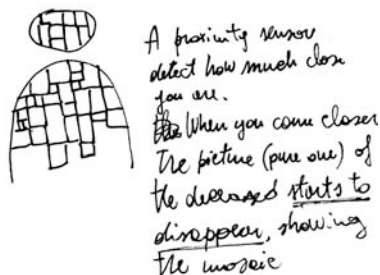 A proximity sensor
detect how much close
you are.
When you come closer
the picture (pure one) of
the deceased starts to
disappear, showing
the mosaic